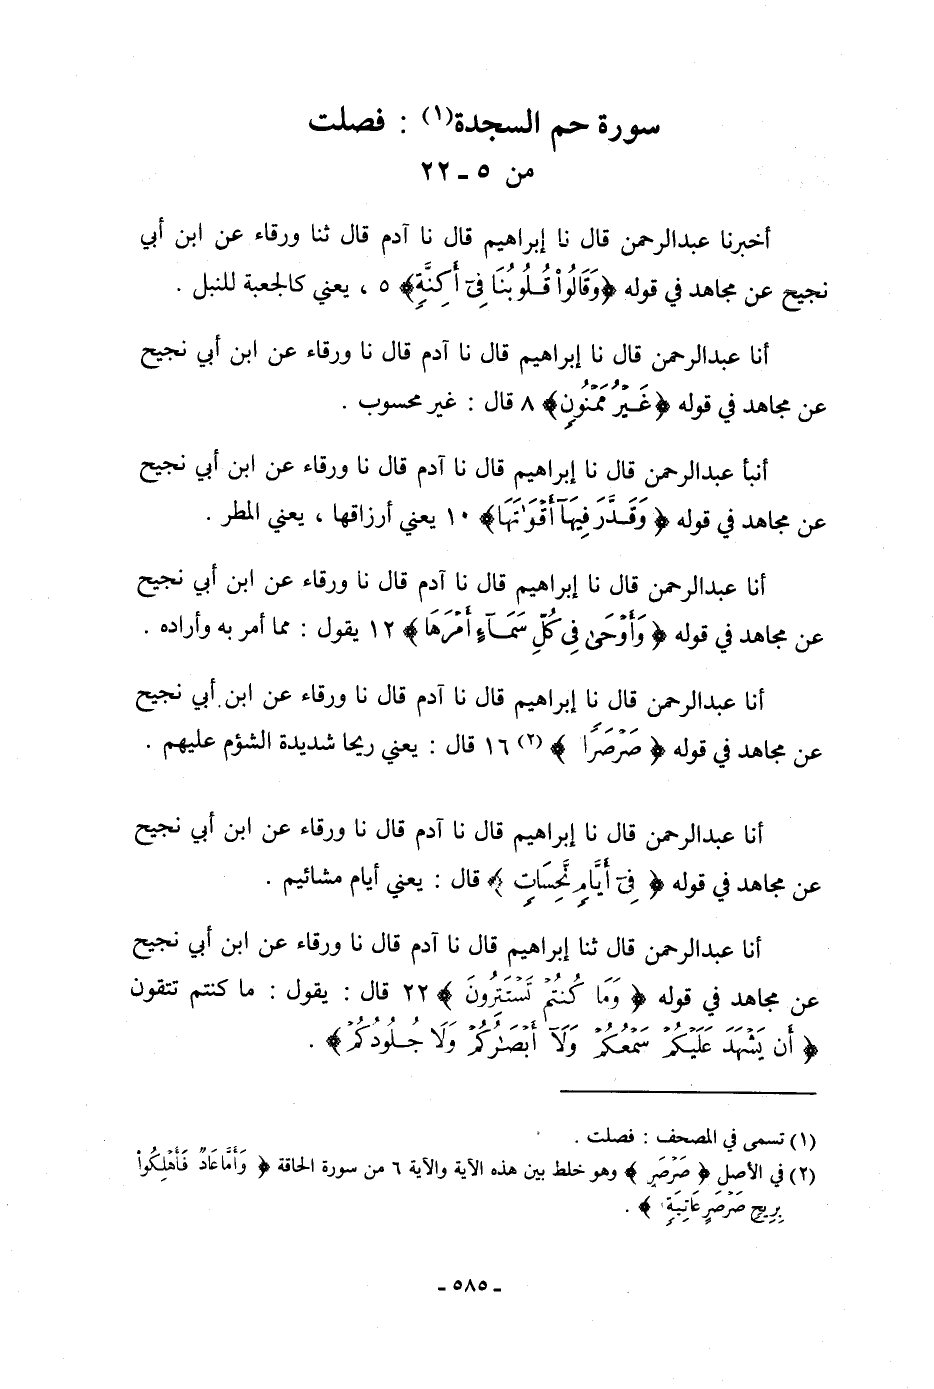 سورة حم السجدة(١) : فصلت
من ٥ ـ ٢٢
أخبرنا عبدالرحمن قال نا إبراهيم قال نا آدم قال ثنا ورقاء عن ابن أبي
نجيح عن مجاهد في قوله ﴿وَقَالُواْ قُلُوبُنَا فِىٓ أَكِنَّةٍ﴾ ٥ ، يعني كالجعبة للنبل .
أنا عبدالرحمن قال نا إبراهيم قال نا آدم قال نا ورقاء عن ابن أبي نجيح
عن مجاهد في قوله ﴿غَيْرُ مَمْنُونٍ﴾ ٨ قال : غير محسوب .
أنبأ عبدالرحمن قال نا إبراهيم قال نا آدم قال نا ورقاء عن ابن أبي نجيح
عن مجاهد في قوله ﴿ وَقَدَّرَ فِيهَآ أَقْوَٰتَهَا﴾ ١٠ يعني أرزاقها ، يعني المطر .
أنا عبدالرحمن قال نا إبراهيم قال نا آدم قال نا ورقاء عن ابن أبي نجيح
عن مجاهد في قوله ﴿ وَأَوْحَىٰ فِى كُلِّ سَمَآءٍ أَمْرَهَا﴾ ١٢ يقول : مما أمر به وأراده .
أنا عبدالرحمن قال نا إبراهيم قال نا آدم قال نا ورقاء عن ابن أبي نجيح
عن مجاهد في قوله ﴿ صَرْصَرًا ﴾ (٢) ١٦ قال : يعني ريحا شديدة الشؤم عليهم .
أنا عبدالرحمن قال نا إبراهيم قال نا آدم قال نا ورقاء عن ابن أبي نجيح
عن مجاهد في قوله ﴿ فِىٓ أَيَّامٍ نَّحِسَاتٍ ﴾ قال : يعني أيام مشائيم .
أنا عبدالرحمن قال ثنا إبراهيم قال نا آدم قال نا ورقاء عن ابن أبي نجيح
عن مجاهد في قوله ﴿ وَمَا كُنتُمْ تَسْتَتِرُونَ ﴾ ٢٢ قال : يقول : ما كنتم تتقون
﴿ أَن يَشْهَدَ عَلَيْكُمْ سَمْعُكُمْ وَلَآ أَبْصَٰرُكُمْ وَلَا جُلُودُكُمْ﴾ .
(١) تسمى في المصحف : فصلت .
(٢) في الأصل ﴿ صَرْصَرٍ ﴾ وهو خلط بين هذه الآية والآية ٦ من سورة الحاقة ﴿ وَأَمَّا عَادٌ فَأُهْلِكُواْ
بِرِيحٍ صَرْصَرٍ عَاتِيَةٍ ﴾ .
ـ ٥٨٥ ـ